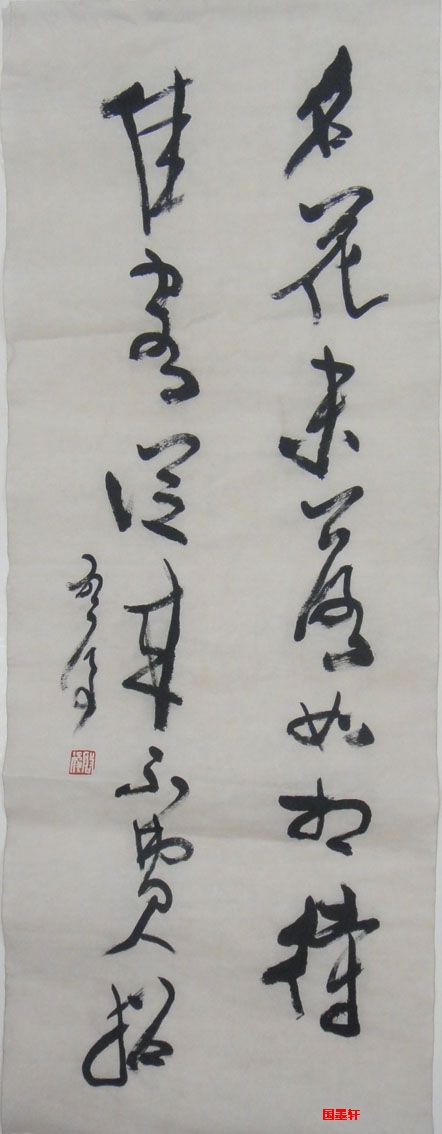 名花未落如相待
佳客從來不費招
国墨轩